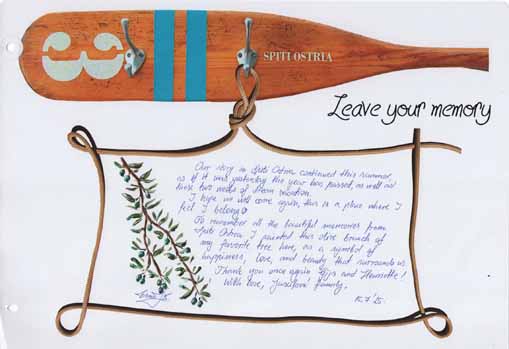 3
SPITI OSTRIA
Leave your memory
Our story in Spiti Ostria continued this summer,
as if it was yesterday the year has passed, as well as
these two weeks of dream vacation.
I hope we will come again, this is a place where I
feel I belong!
To remember all the beautiful memories from
Spiti Ostria I painted this olive branch of
my favorite tree here, as a symbol of
happiness, love, and beauty that surrounds us.
Thank you once again and Henriette!
With love, family.